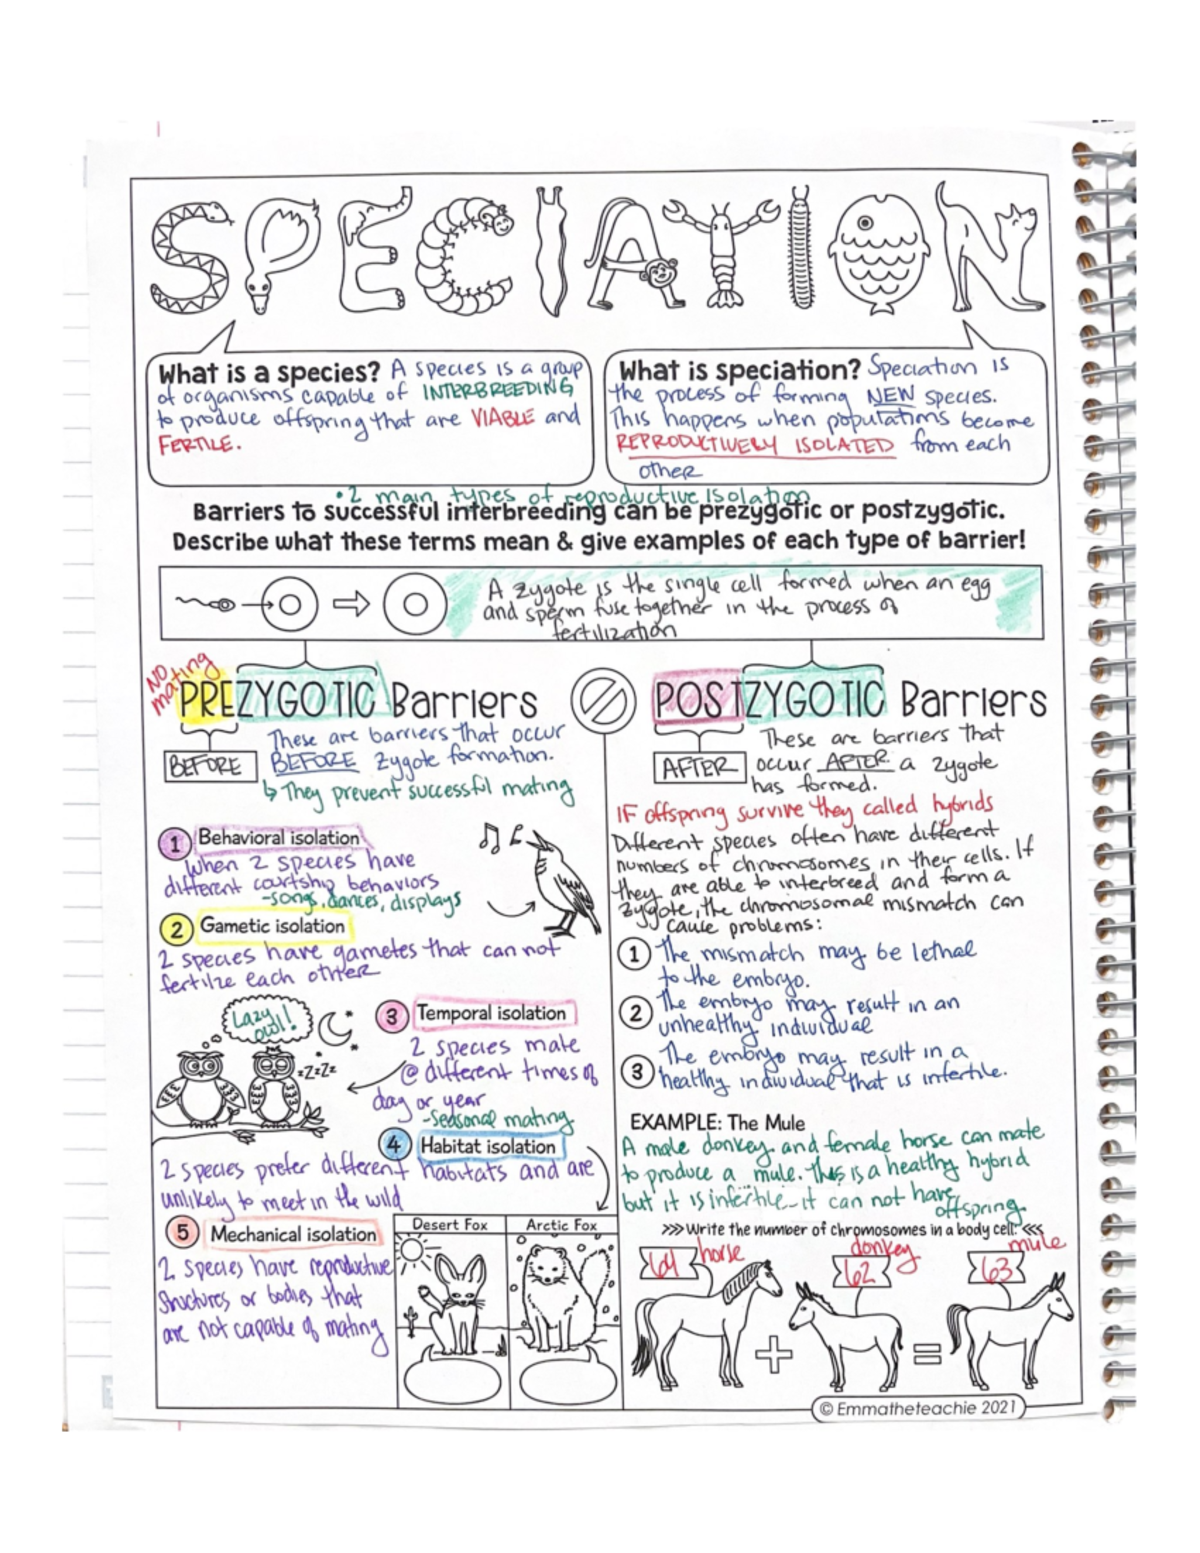 SPECIATION
What is a species? A species is a group
of organisms capable of INTERBREEDING
to produce offspring that are VIABLE and
FERTILE.
What is speciation? Speciation is
the process of forming NEW species.
This happens when populations become
REPRODUCTIVELY ISOLATED from each
other
•2 main types of reproductive isolation
Barriers to successful interbreeding can be prezygotic or postzygotic.
Describe what these terms mean & give examples of each type of barrier!
A zygote is the single cell formed when an egg
and sperm fuse together in the process of
fertilization
NO
mating
PREZYGOTIC Barriers
BEFORE
These are barriers that occur
BEFORE zygote formation.
↳ They prevent successful mating
1 Behavioral isolation
When 2 species have
different courtship behaviors
-songs, dances, displays
2 Gametic isolation
2 species have gametes that can not
fertilize each other
Lazy
owl!
zZzZz
3 Temporal isolation
2 species mate
@ different times of
day or year
-Seasonal mating
4 Habitat isolation
2 species prefer different habitats and are
unlikely to meet in the wild
5 Mechanical isolation
2 species have reproductive
structures or bodies that
are not capable of mating
Desert Fox
Arctic Fox
POSTZYGOTIC Barriers
AFTER
These are barriers that
occur AFTER a zygote
has formed.
IF offspring survive they called hybrids
Different species often have different
numbers of chromosomes in their cells. If
they are able to interbreed and form a
zygote, the chromosomal mismatch can
cause problems:
1 The mismatch may be lethal
to the embryo.
2 The embryo may result in an
unhealthy individual
3 The embryo may result in a
healthy individual that is infertile.
EXAMPLE: The Mule
A male donkey and female horse can mate
to produce a mule. This is a healthy hybrid
but it is infertile - it can not have
offspring.
>>> Write the number of chromosomes in a body cell: <<<
64 horse
donkey
62
mule
63
+
=
© Emmatheteachie 2021